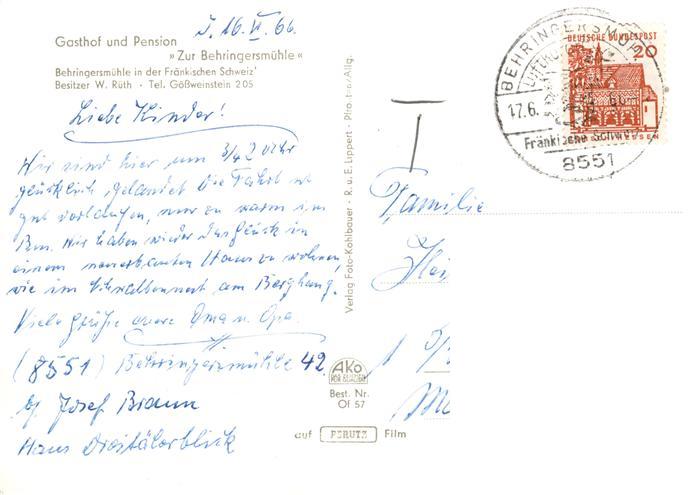 J. 16. VI. 66.
Gasthof und Pension
»Zur Behringersmühle«
Behringersmühle in der Fränkischen Schweiz
Besitzer W. Rüth · Tel. Gößweinstein 205
Liebe Kinder!
Wir sind hier um 3/4 2 Uhr
glücklich gelandet. Die Fahrt ist
gut verlaufen, nur zu warm im
Bus. Wir haben wieder das Glück in
einem neuerbauten Haus zu wohnen,
wie im Schwalbennest am Berghang.
Viele Grüße eure Oma u. Opa.
(8551) Behringersmühle 42
bei Josef Braun
Haus Dreitälerblick
Verlag Foto-Kohlbauer · R. u. E. Lippert · Pfro.
AKO
FÜR QUALITÄT
Best. Nr.
Of 57
auf PERUTZ Film
BEHRINGERSMÜHLE
LUFTKURORT
17.6.
66
Fränkische Schweiz
8551
DEUTSCHE BUNDESPOST
20
Familie
Hei